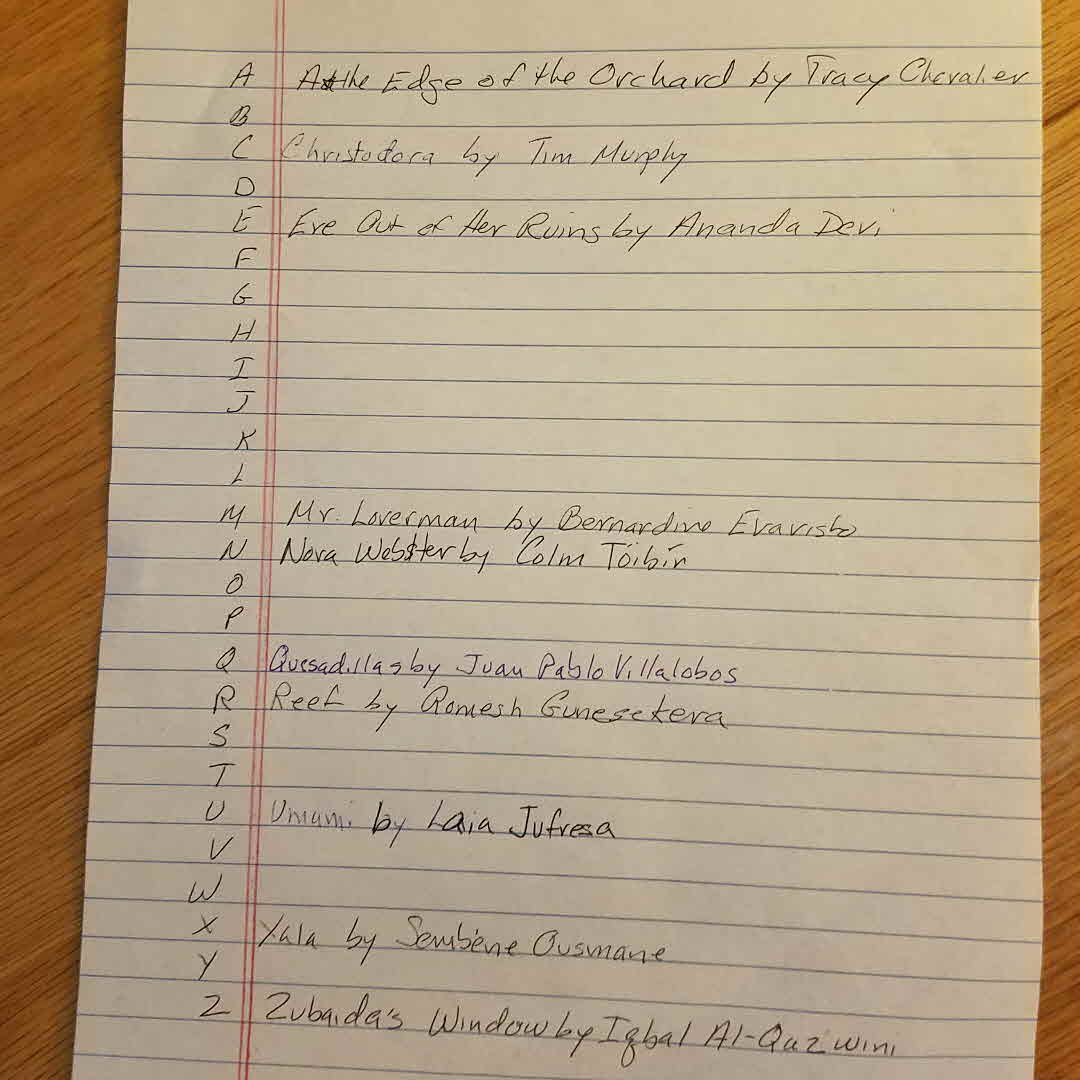 A At the Edge of the Orchard by Tracy Chevalier
B
C Christodora by Tim Murphy
D
E Eve Out of Her Ruins by Ananda Devi
F
G
H
I
J
K
L
M Mr. Loverman by Bernardine Evaristo
N Nora Webster by Colm Tóibín
O
P
Q Quesadillas by Juan Pablo Villalobos
R Reef by Romesh Gunesekera
S
T
U Umami by Laia Jufresa
V
W
X Xala by Sembène Ousmane
Y
Z Zubaida's Window by Iqbal Al-Qazwini